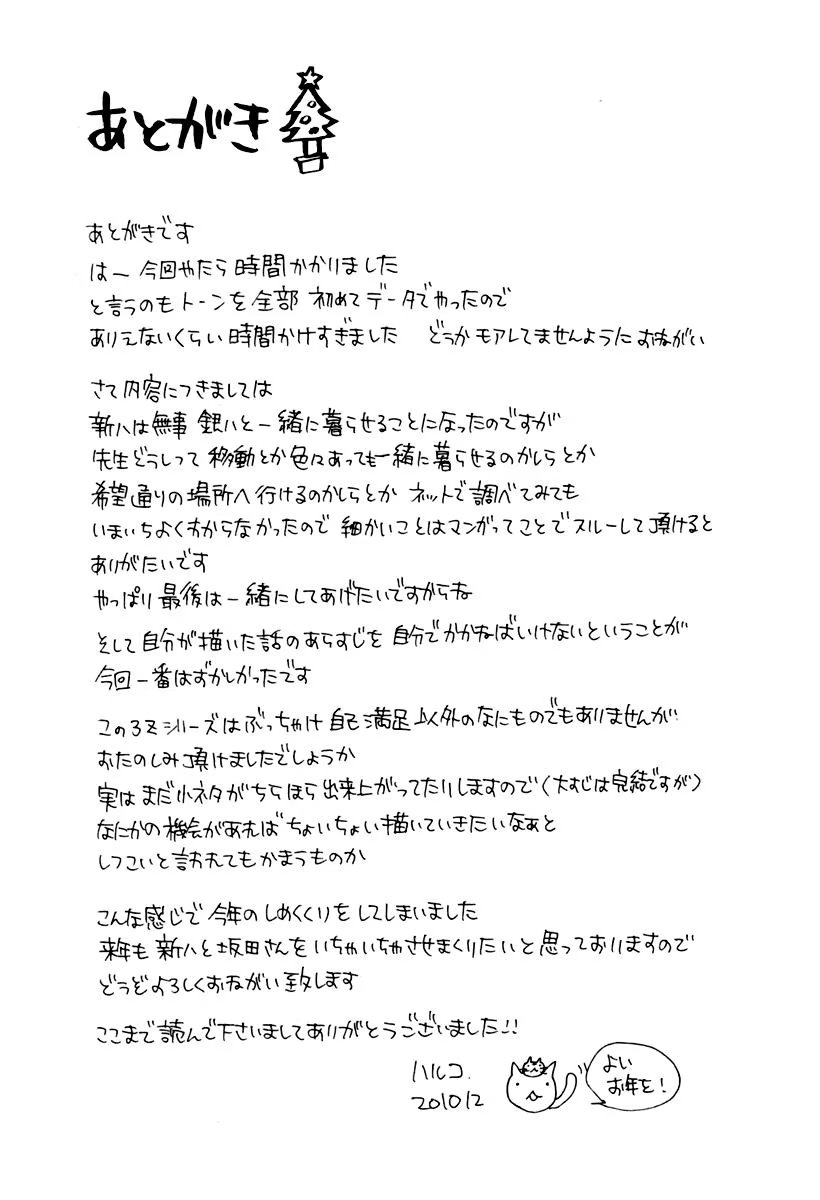 あとがき
あとがきです
はー 今回やたら時間かかりました
と言うのもトーンを全部 初めてデータでやったので
ありえないくらい時間かけすぎました どうかモアレしてませんように おねがい
さて内容につきましては
新八は無事 銀八と一緒に暮らせることになったのですが
先生どうしって 移動とか色々あっても一緒に暮らせるのかしらとか
希望通りの場所へ行けるのかしらとか ネットで調べてみても
いまいちよくわからなかったので 細かいことはマンガってことでスルーして頂けると
ありがたいです
やっぱり最後は一緒にしてあげたいですからね
そして自分が描いた話のあらすじを 自分でかかねばいけないということが
今回一番はずかしかったです
この3Zシリーズはぶっちゃけ自己満足以外のなにものでもありませんが
おたのしみ頂けましたでしょうか
実はまだ小ネタがちらほら出来上がってたりしますので(大すじは完結ですが)
なにかの機会があればちょいちょい描いていきたいなぁと
しつこいと言われてもかまうものか
こんな感じで今年のしめくくりをしてしまいました
来年も新八と坂田さんをいちゃいちゃさせまくりたいと思っておりますので
どうぞよろしくおねがい致します
ここまで読んで下さいましてありがとうございました!!
ハルコ.
201012
よい
お年を!